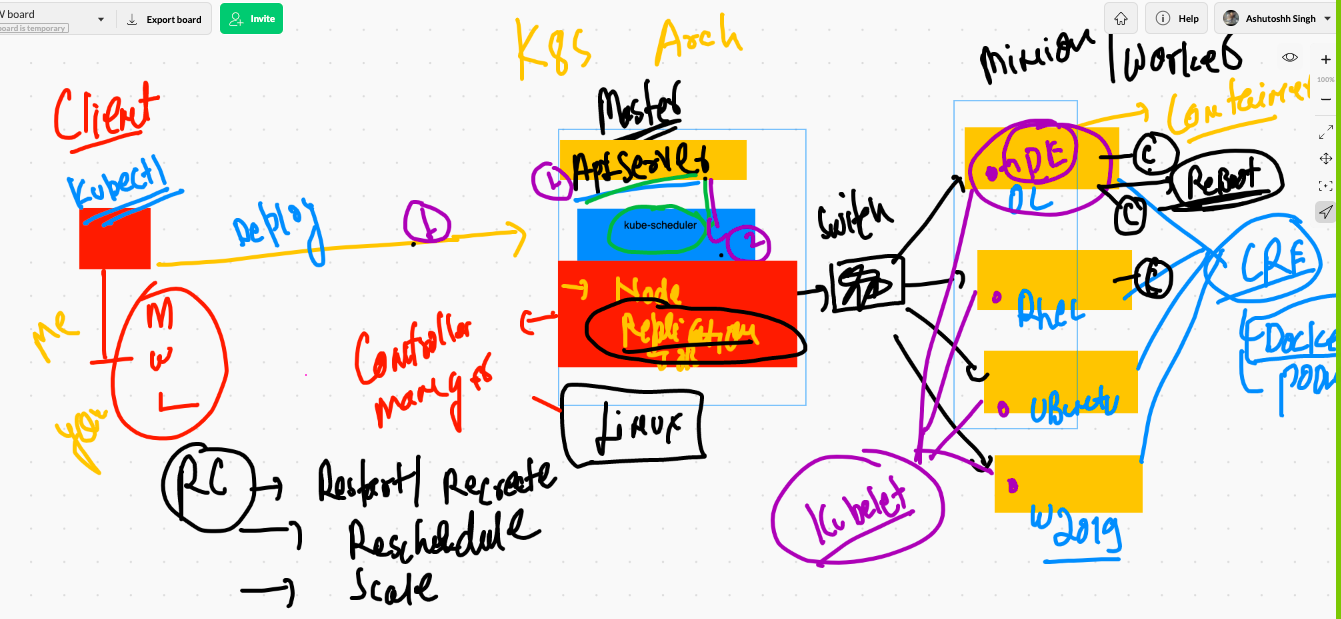 W board
board is temporary
Export board
Invite
Help
Ashutoshh Singh
100%
K8S Arch
Minion / Worker
Client
Kubectl
Deploy
1
me
you
M
W
L
Master
1
ApiServer
kube-scheduler
2
Node
Replication
Controller
manager
Linux
Switch
Container
DE
OL
C
C
Reboot
C
Rhel
Ubuntu
W2019
CRE
Docke
Kubelet
RC
Restart/ Recreate
Reschedule
Scale